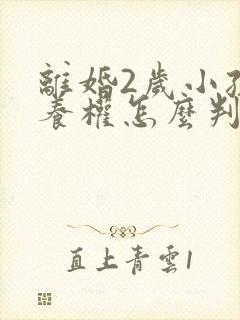 離婚2歲小孩
養權怎麼判
直上青雲1